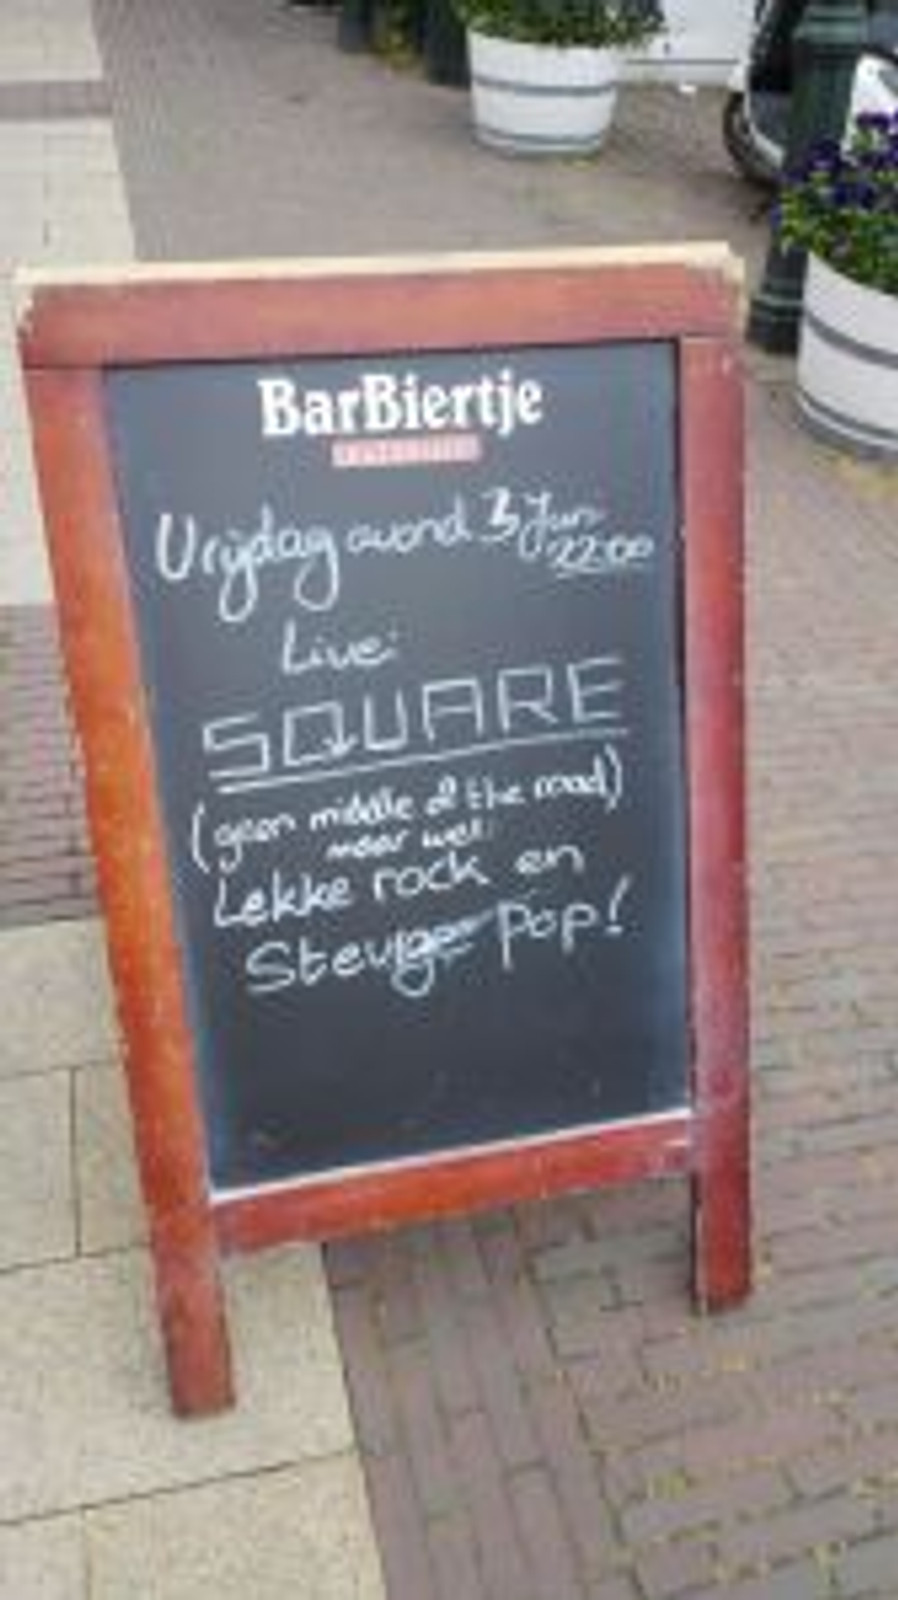 BarBiertje
Vrijdag avond 3 Juni
22:00
Live:
SQUARE
(geen middle of the road)
maar wel:
Lekke rock en
Stevige pop!